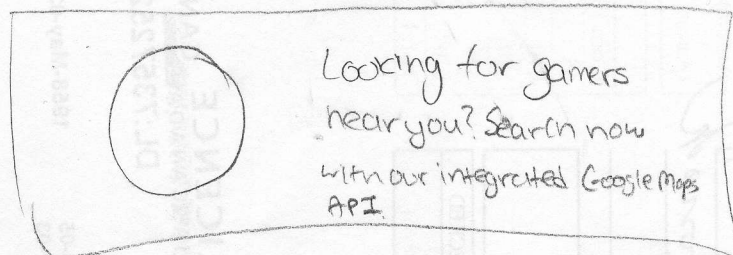 Looking for gamers
near you? Search now
with our integrated Google Maps
API.